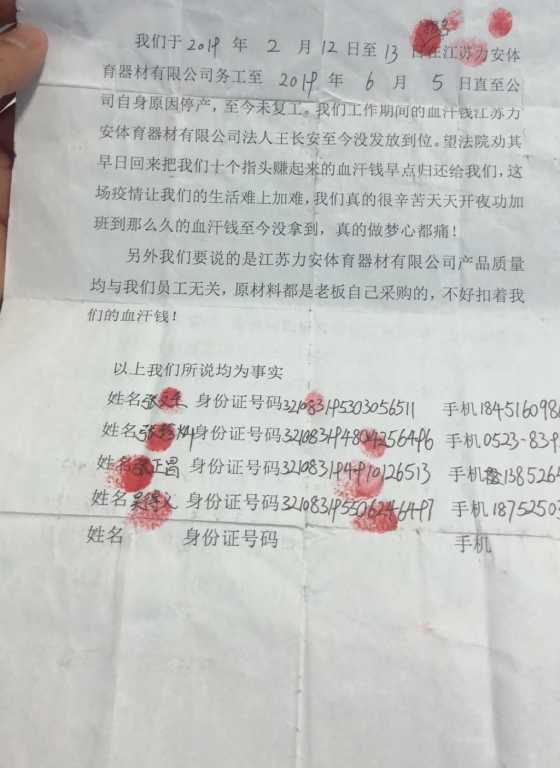 我们于2019年2月12日至13日在江苏力安体
育器材有限公司务工至2019年6月5日直至公
司自身原因停产，至今未复工。我们工作期间的血汗钱江苏力
安体育器材有限公司法人王长安至今没发放到位。望法院劝其
早日回来把我们十个指头赚起来的血汗钱早点归还给我们，这
场疫情让我们的生活难上加难，我们真的很辛苦天天开夜功加
班到那么久的血汗钱至今没拿到，真的做梦心都痛！
另外我们要说的是江苏力安体育器材有限公司产品质量
均与我们员工无关，原材料都是老板自己采购的，不好扣着我
们的血汗钱！
以上我们所说均为事实
姓名张 身份证号码321083195303056511 手机184516098
姓名张 身份证号码321083194804256496 手机0523-839
姓名张正昌 身份证号码321083194910126513 手机1385264
姓名吴 身份证号码321083195506246497 手机18752503
姓名 身份证号码 手机